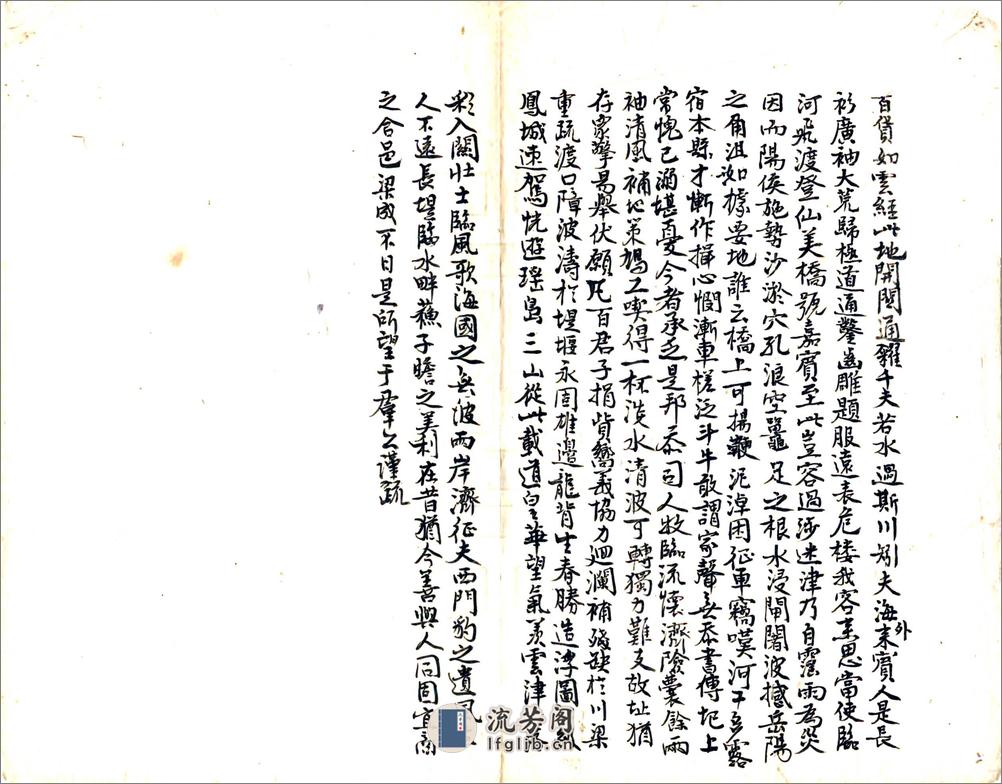 百貨如雲經此地開關通雞千夫若水過斯川矧夫海外來賓人是長
衫廣袖大荒歸極道通鑿齒雕題服遠表危樓我客來思當使臨
河飛渡登仙美橋號嘉賓至此豈容過涉迷津乃自霪雨為災
因而陽侯施勢沙淤穴孔浪空鼉足之根水浸閘闌波撼岳陽
之角沮洳據要地誰云橋上可揚鞭泥淖困征車竊嘆河干多露
宿本縣才慚作揖心憫漸車槎泛斗牛敢謂家聲無忝書傳圯上
常愧己溺堪憂今者承乏是邦忝司人牧臨流懷濟險囊餘兩
袖清風補地策鳩工喫得一杯淡水清波可轉獨力難支故址猶
存眾擎易舉伏願凡百君子捐貲嚮義協力迴瀾補殘缺於川梁
重疏渡口障波濤於堤堰永固雄邊龍背生春勝造浮圖
鳳城速駕恍遊瑤島三山從此載道皇華望氣羨雲津
彩入關壯士臨風歌海國之無波兩岸濟征夫西門豹之遺風
人不遠長堤臨水畔蘇子瞻之美利在昔猶今善與人同固宜商
之合邑梁成不日是所望于羣公謹疏
流芳阁
lfglib.cn